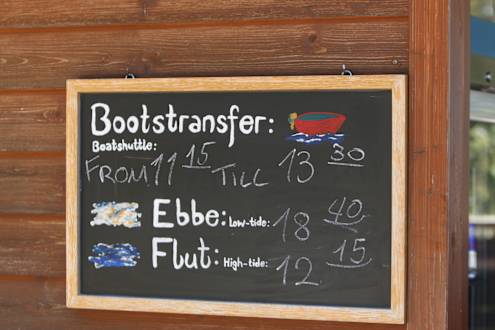 Bootstransfer:
Boatshuttle:
FROM 11 15 TILL 13 30
Ebbe: Low-tide: 18 40
Flut: High-tide: 12 15